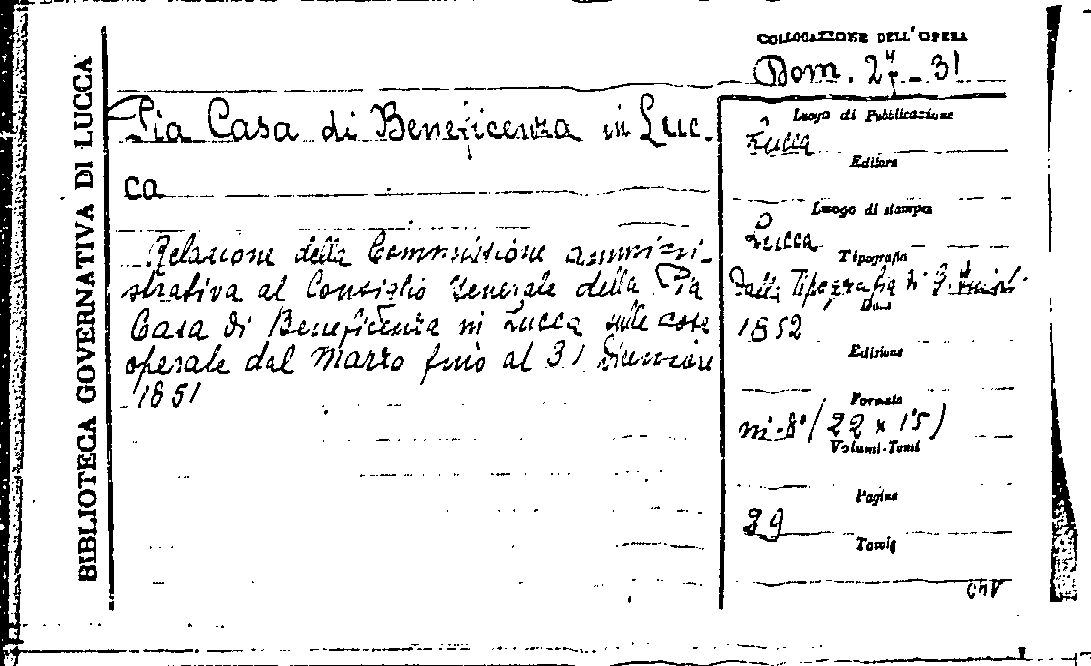 BIBLIOTECA GOVERNATIVA DI LUCCA
COLLOCAZIONE DELL'OPERA
Dom. 24-31
Pia Casa di Beneficenza in Luc-
ca
Relazione della Commissione ammini-
strativa al Consiglio Generale della Pia
Casa di Beneficenza in Lucca sulle cose
operate dal Marzo fino al 31 Dicembre
1851
Luogo di Pubblicazione
Lucca
Editore
Luogo di stampa
Lucca
Tipografia
Dalla Tipografia di G.
Data
1852
Edizione
Formato
in-8° (22 x 15)
Volumi-Tomi
Pagine
29
Tavole